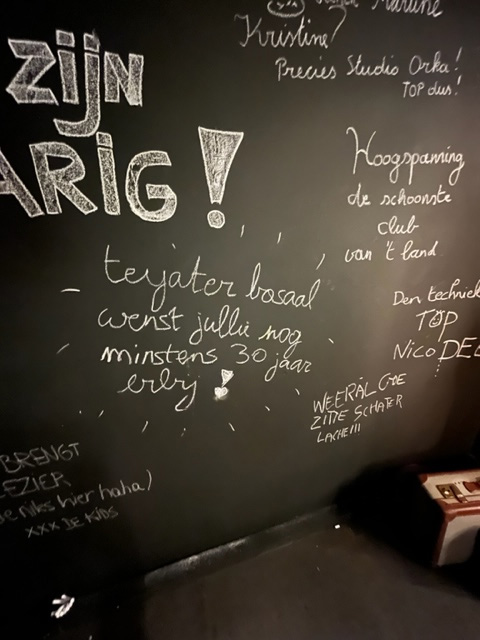 Kristine!
Precies Studio Orka!
TOP dus!
ZIJN
ARIG!
Hoogspanning
de schoonste
club
van 't land
teyater basaal
wenst jullie nog
minstens 30 jaar
erbij!
Den techniek
TOP
Nico
WEERAL
ZITTE SCHATER
LACHE!!!
BRENGT
EZIER
niks hier haha)
xxx DE KIDS